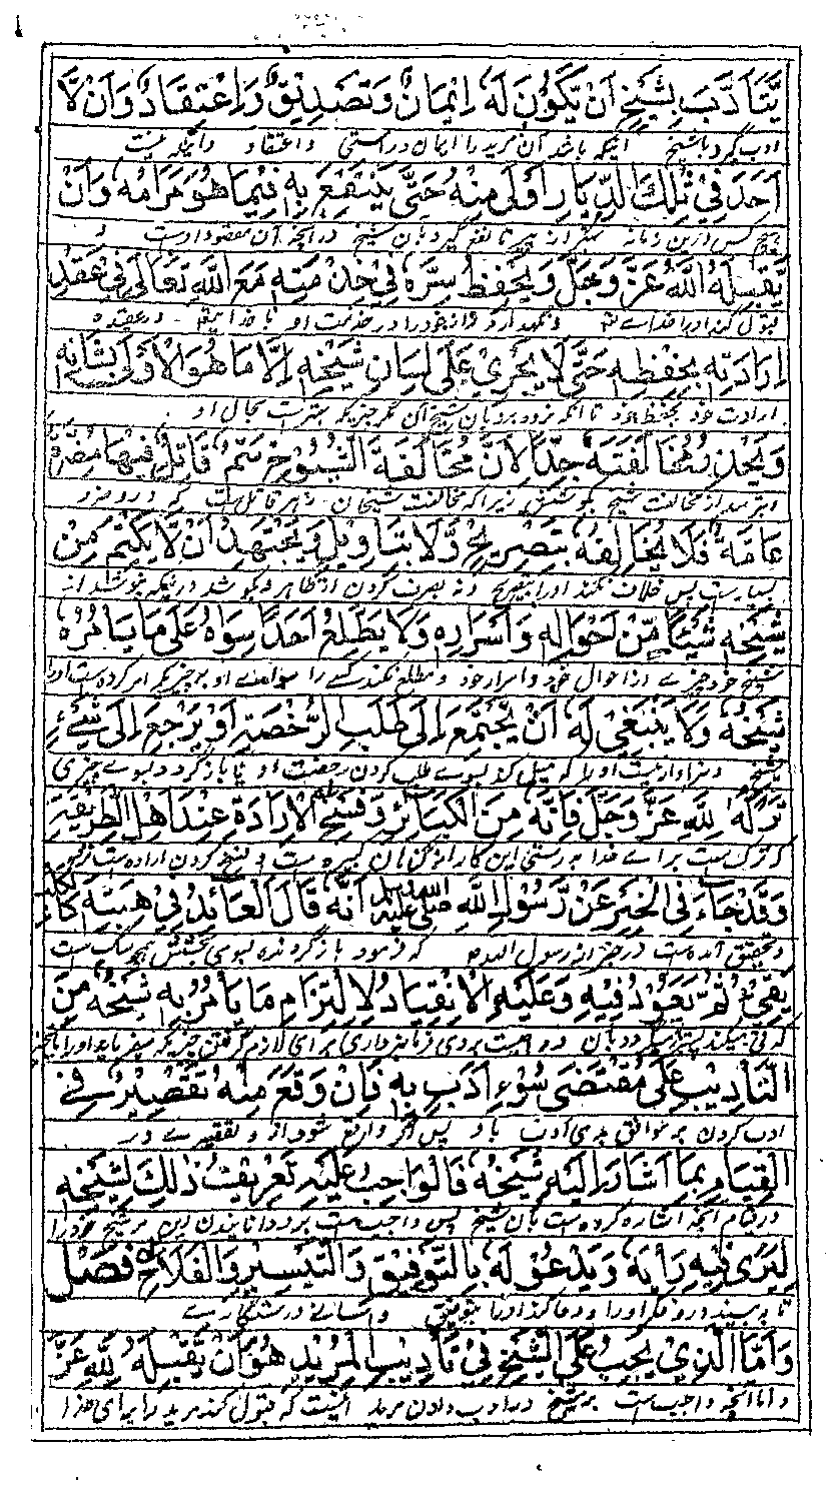 يَّتَأَدَّبَ بِشَيْخٍ اَنْ يَّكُوْنَ لَهٗ اِيْمَانٌ وَتَصْدِيْقٌ وَاِعْتِقَادٌ وَاَنْ لَّا
ادب گیرد با شیخ اینکه باشد آن مرید را ایمان و راستی و اعتقاد و اینکه نیست
اَحَدَ فِيْ تِلْكَ الدِّيَارِ اَوْلٰى مِنْهُ حَتّٰى يَنْتَفِعَ بِهٖ فِيْمَا هُوَ مَرَامُهٗ وَاَنْ
هیچ کس درین زمانه بهتر از پیر تا نفع گیرد بان شیخ در آنچه آن مقصود اوست و
يَّقْبَلَهُ اللّٰهُ عَزَّ وَجَلَّ وَيَحْفَظَ سِرَّهٗ فِيْ خِدْمَتِهٖ مَعَ اللّٰهِ تَعَالٰى فِيْ عَقْدِ
قبول کند او را خدای و نگهدارد راز خود را در خدمت او با خدا در عقده
اِرَادَتِهٖ بِحِفْظِهٖ حَتّٰى لَا يَجْرِيْ عَلٰى لِسَانِ شَيْخِهٖ اِلَّا مَا هُوَ الْاَوْلٰى بِشَانِهٖ
ارادت خود بحفظ خود تا آنکه نرود بر زبان شیخ آن مگر چیزیکه بهترست بحال او
وَيَحْذَرُ مُخَالَفَتَهٗ جِدًّا لِاَنَّ مُخَالَفَةَ الشُّيُوْخِ سَمٌّ قَاتِلٌ فِيْهَا مَضَرَّةٌ
از مخالفت شیخ بکوشش زیراکه مخالفت شیخان زهر قاتل ست که درو ضرر
عَامَّةٌ فَلَا يُخَالِفُهٗ بِتَصْرِيْحٍ وَّلَا بِتَاوِيْلٍ وَيَجْتَهِدُ اَنْ لَّا يَكْتُمَ مِنْ
بسیارست پس خلاف نکند او را بتصریح و نه بصرف کردن از ظاهر و بکوشد در اینکه نپوشد از
شَيْخِهٖ شَيْئًا مِّنْ اَحْوَالِهٖ وَاَسْرَارِهٖ وَلَا يَطَّلِعُ اَحَدًا سِوَاهُ عَلٰى مَا يَأْمُرُهٗ
شیخ خود چیزے از احوال خود و اسرار خود و مطلع نکند کسے را سوائے او بر چیزیکه امر کرده ست او را
شَيْخُهٗ وَلَا يَنْبَغِيْ لَهٗ اَنْ يَّجْتَمِعَ اِلٰى طَلَبِ الرُّخْصَةِ اَوْ يَرْجِعَ اِلٰى شَيْءٍ
شیخ و سزاوار نیست او را که میل کند بسوے طلب کردن رخصت او یا باز گردد بسوے چیزی
تَرَكَهٗ لِلّٰهِ عَزَّ وَجَلَّ فَاِنَّهٗ مِنَ الْكَبَائِرِ وَفَسْخِ الْاِرَادَةِ عِنْدَ اَهْلِ الطَّرِيْقَةِ
که ترک ست برائے خدا بدرستی این کار از گناهان کبیره ست و فسخ کردن اراده ست نزد
وَقَدْ جَاءَ فِي الْخَبَرِ عَنْ رَّسُوْلِ اللّٰهِ صلى الله عليه وسلم اَنَّهٗ قَالَ الْعَائِدُ فِيْ هِبَتِهٖ كَالْكَلْبِ
و تحقیق آمده ست در خبر از رسول الله که فرمود باز گردنده بسوی بخشش همچو سگ ست
يَقِيْءُ ثُمَّ يَعُوْدُ فِيْهِ وَعَلَيْهِ الْاِنْقِيَادُ لِالْتِزَامِ مَا يَأْمُرُ بِهٖ شَيْخُهٗ مِنَ
که قی میکند بان و واجب ست بروی فرمانبرداری برای لازم گرفتن چیزیکه میفرماید او را شیخ
التَّأْدِيْبِ عَلٰى مُقْتَضٰى سُوْءِ اَدَبٍ بِهٖ فَاِنْ وَقَعَ مِنْهُ تَقْصِيْرٌ فِيْ
ادب کردن بر موافق بدی ادب با او پس اگر واقع شود از و تقصیرے در
الْقِيَامِ بِمَا اَشَارَ اِلَيْهِ شَيْخُهٗ فَالْوَاجِبُ عَلَيْهِ تَعْرِيْفُ ذٰلِكَ لِشَيْخِهٖ
در قیام آنچه اشاره کرده ست بان شیخ پس واجب ست برو دانانیدن این مر شیخ خود را
لِيَرٰى فِيْهِ رَأْيَهٗ وَيَدْعُوَ لَهٗ بِالتَّوْفِيْقِ وَالتَّيْسِيْرِ وَالْفَلَاحِ فَصْلٌ
تا به بیند درو فکر او را و دعا کند او را بتوفیق و آسانے و رستگارے
وَاَمَّا الَّذِيْ يَجِبُ عَلَى الشَّيْخِ فِيْ تَأْدِيْبِ الْمُرِيْدِ هُوَ اَنْ يَّقْبَلَهٗ لِلّٰهِ عَزَّ
و اما آنچه واجب ست بر شیخ در ادب دادن مرید اینست که قبول کند مرید را برای خدا